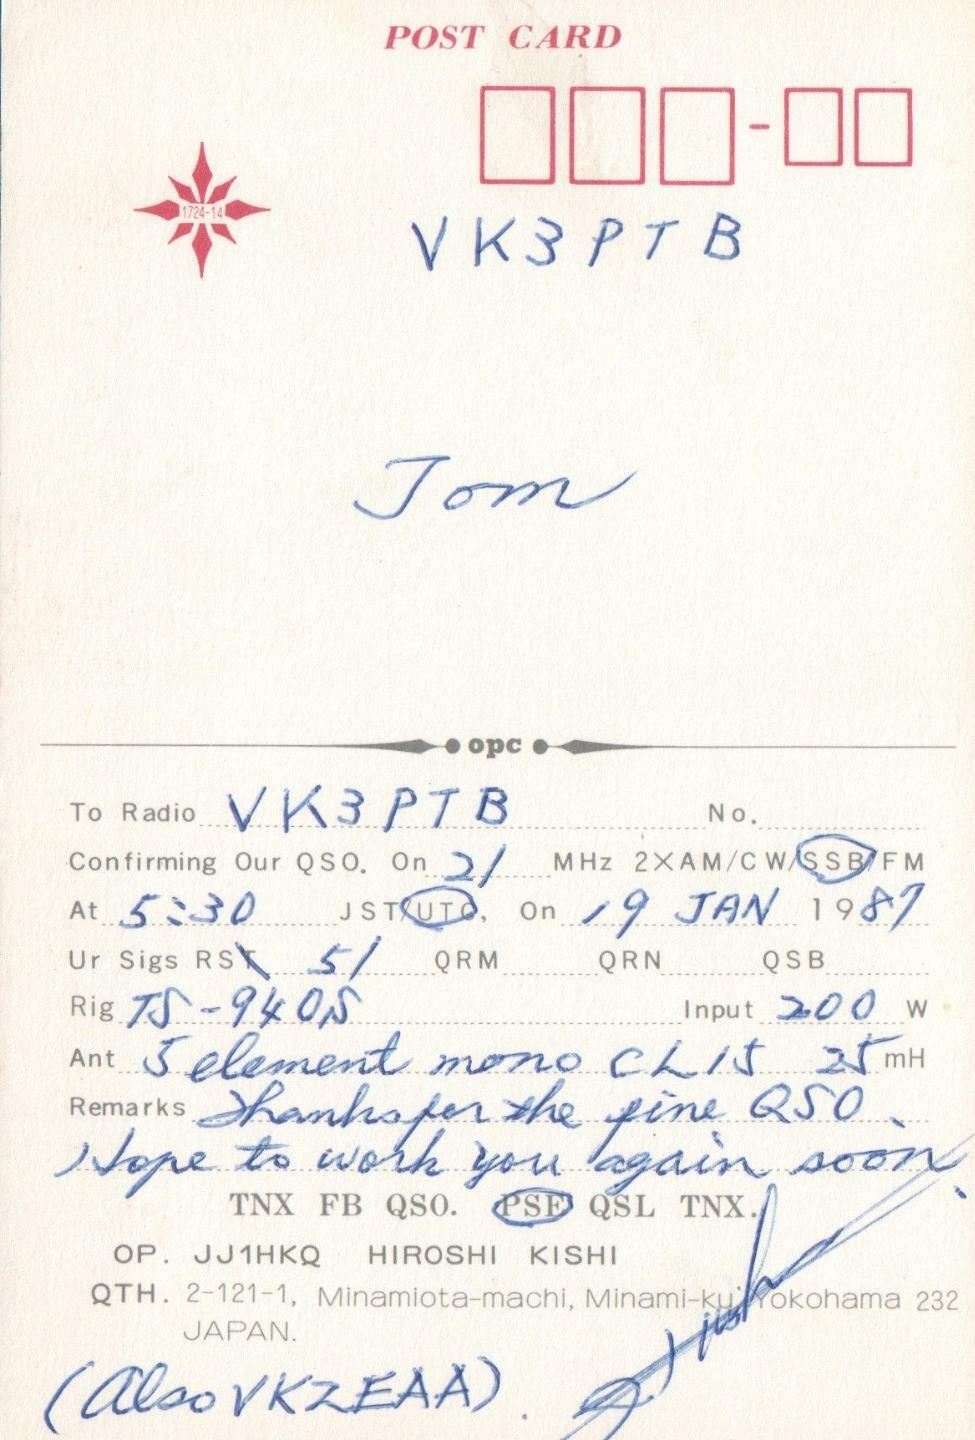 POST CARD
1724-14
VK3PTB
Tom
opc
To Radio VK3PTB No.
Confirming Our QSO. On 21 MHz 2×AM/CW/SSB/FM
At 5:30 JST/UTC, On 19 JAN 1987
Ur Sigs RST 51 QRM QRN QSB
Rig TS-940S Input 200 W
Ant 5 element mono CL15 25 mH
Remarks Thanks for the fine QSO.
Hope to work you again soon.
TNX FB QSO. PSE QSL TNX.
OP. JJ1HKQ HIROSHI KISHI
QTH. 2-121-1, Minamiota-machi, Minami-ku, Yokohama 232
JAPAN.
(Also VK2EAA)